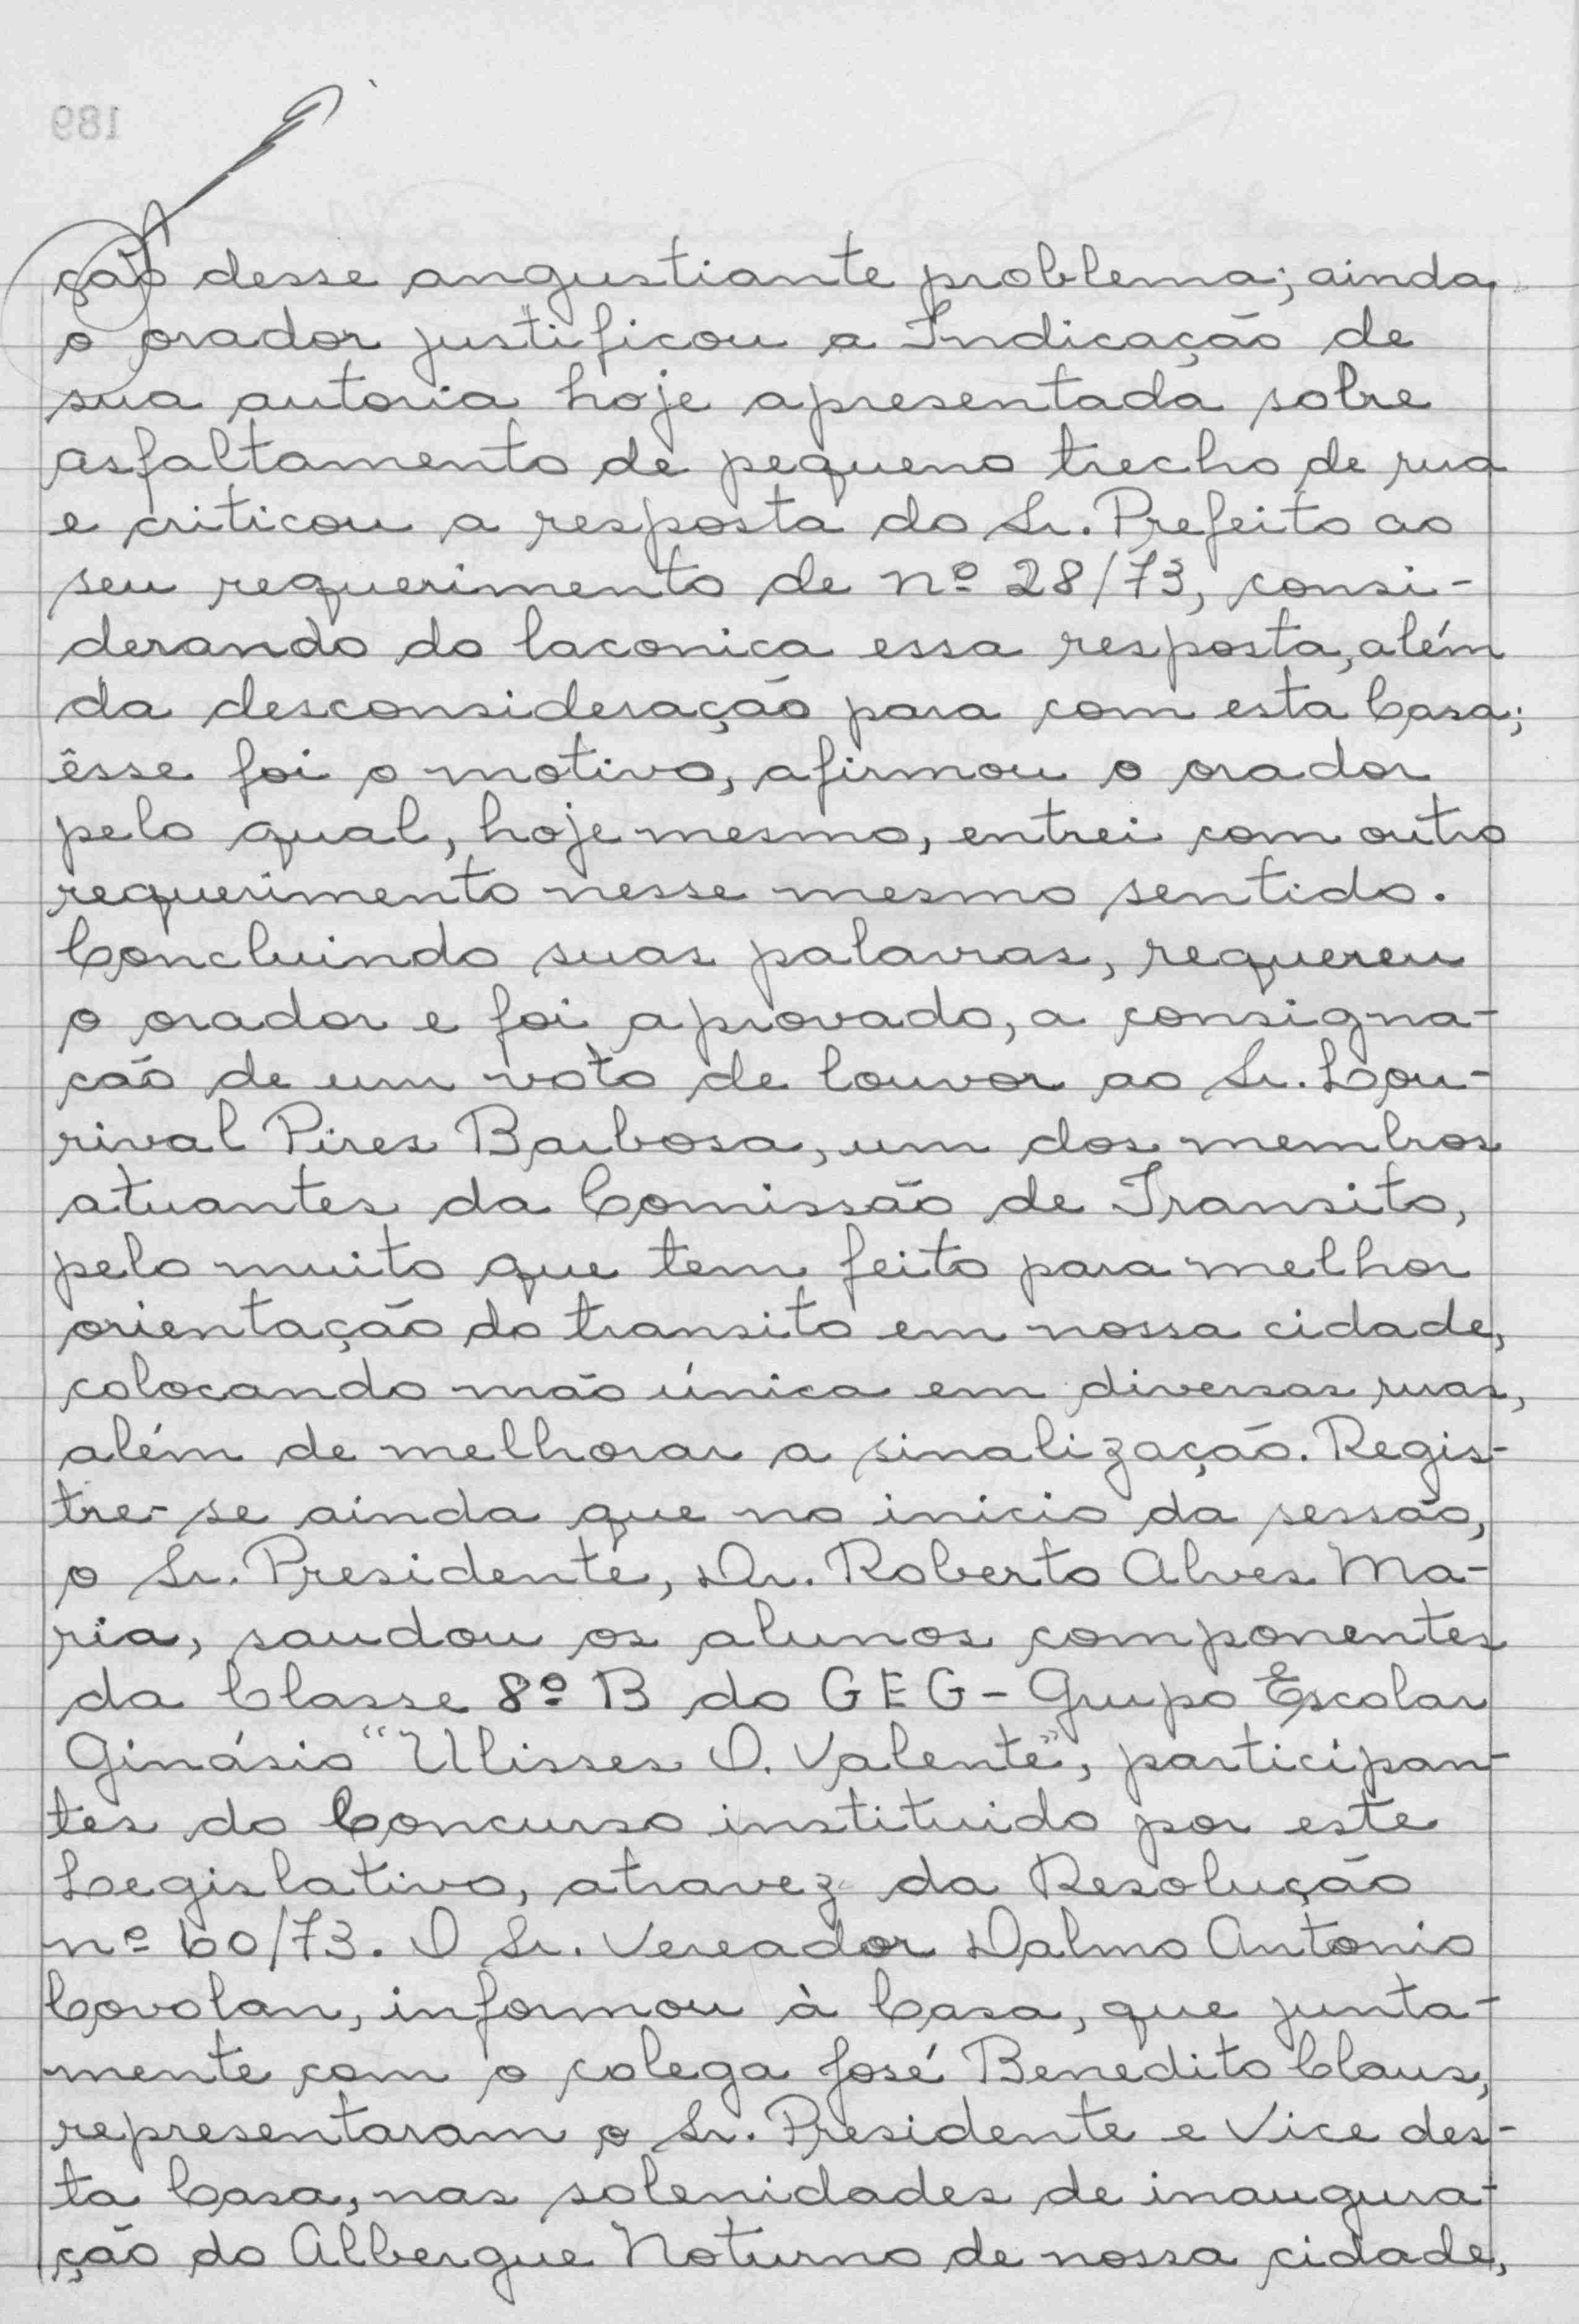 ção desse angustiante problema; ainda
o orador justificou a Indicação de
sua autoria hoje apresentada sobre
asfaltamento de pequeno trecho de rua
e criticou a resposta do Sr. Prefeito ao
seu requerimento de nº 28/73, consi-
derando do laconica essa resposta, além
da desconsideração para com esta Casa;
êsse foi o motivo, afirmou o orador
pelo qual, hoje mesmo, entrei com outro
requerimento nesse mesmo sentido.
Concluindo suas palavras, requereu
o orador e foi aprovado, a consigna-
cão de um voto de louvor ao Sr. Lou-
rival Pires Barbosa, um dos membros
atuantes da Comissão de Transito,
pelo muito que tem feito para melhor
orientação do transito em nossa cidade,
colocando mão única em diversas ruas,
além de melhorar a sinalização. Regis-
tre-se ainda que no inicio da sessão,
o Sr. Presidente, Dr. Roberto Alves Ma-
ria, saudou os alunos componentes
da Classe 8º B do GEG - Grupo Escolar
Ginásio "Ulisses O. Valente", participan-
tes do Concurso instituido por este
Legislativo, atravez da Resolução
nº 60/73. O Sr. Vereador Dalmo Antonio
Covolan, informou à Casa, que junta-
mente com o colega José Benedito Claus,
representaram o Sr. Presidente e Vice des-
ta Casa, nas solenidades de inaugura-
ção do Albergue Noturno de nossa cidade,
189